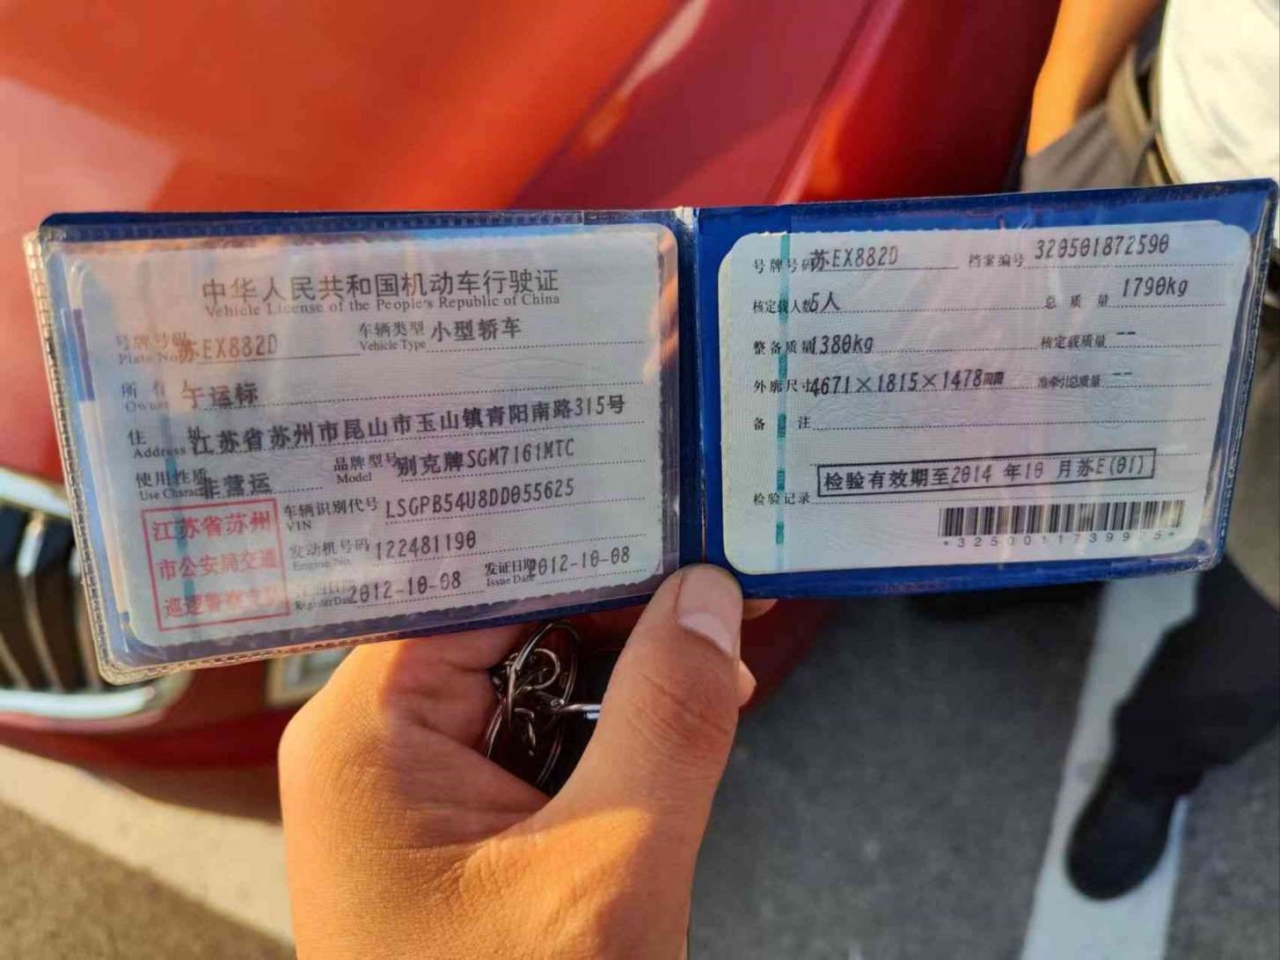 中华人民共和国机动车行驶证
Vehicle License of the People's Republic of China
号牌号码 苏EX882D 车辆类型 小型轿车
Plate No. Vehicle Type
所有
Owner 运标
住 址 江苏省苏州市昆山市玉山镇青阳南路315号
Address
使用性质 非营运 品牌型号 别克牌SGM7161MTC
Use Character Model
江苏省苏州
市公安局交通
巡逻警察支队
车辆识别代号 LSGPB54U8DD055625
VIN
发动机号码 122481190
Engine No.
注册日期 2012-10-08 发证日期 2012-10-08
Register Date Issue Date
号牌号码 苏EX882D 档案编号 320501872590
核定载人数 5人 总 质 量 1790kg
整备质量 1380kg 核定载质量 --
外廓尺寸 4671×1815×1478mm 准牵引总质量 --
备 注
检验有效期至2014 年10 月苏E(01)
检验记录
*3250011739975*